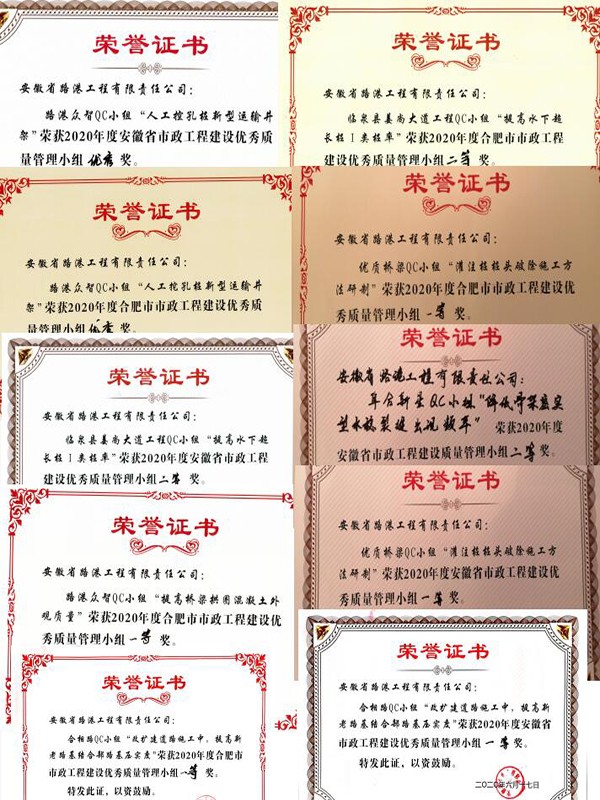 荣誉证书
安徽省路港工程有限责任公司：
路港众智QC小组“人工挖孔桩新型运输井
架”荣获2020年度安徽省市政工程建设优秀质
量管理小组优秀 奖。
荣誉证书
安徽省路港工程有限责任公司：
临泉县姜尚大道工程QC小组“提高水下超
长桩Ⅰ类桩率”荣获2020年度合肥市市政工程
建设优秀质量管理小组二等 奖。
荣誉证书
安徽省路港工程有限责任公司：
路港众智QC小组“人工挖孔桩新型运输井
架”荣获2020年度合肥市市政工程建设优秀质
量管理小组优秀 奖。
荣誉证书
安徽省路港工程有限责任公司：
优质桥梁QC小组“灌注桩桩头破除施工方
法研制”荣获2020年度合肥市市政工程建设优
秀质量管理小组一等 奖。
荣誉证书
安徽省路港工程有限责任公司：
临泉县姜尚大道工程QC小组“提高水下超
长桩Ⅰ类桩率”荣获2020年度安徽省市政工程
建设优秀质量管理小组二等 奖。
荣誉证书
安徽省路港工程有限责任公司：
QC小组“降低
出现频率” 荣获2020年度
安徽省市政工程建设质量管理小组二等 奖。
荣誉证书
安徽省路港工程有限责任公司：
路港众智QC小组“提高桥梁拱圈混凝土外
观质量”荣获2020年度合肥市市政工程建设优
秀质量管理小组一等 奖。
荣誉证书
安徽省路港工程有限责任公司：
优质桥梁QC小组“灌注桩桩头破除施工方
法研制”荣获2020年度安徽省市政工程建设优
秀质量管理小组一等 奖。
荣誉证书
安徽省路港工程有限责任公司：
合相路QC小组“改扩建道路施工中，提高新
老路基结合部路基压实度”荣获2020年度合肥市
市政工程建设优秀质量管理小组一等 奖。
特发此证，以资鼓励。
荣誉证书
安徽省路港工程有限责任公司：
合相路QC小组“改扩建道路施工中，提高新
老路基结合部路基压实度”荣获2020年度安徽省
市政工程建设优秀质量管理小组一等 奖。
特发此证，以资鼓励。
二〇二〇年六月十七日